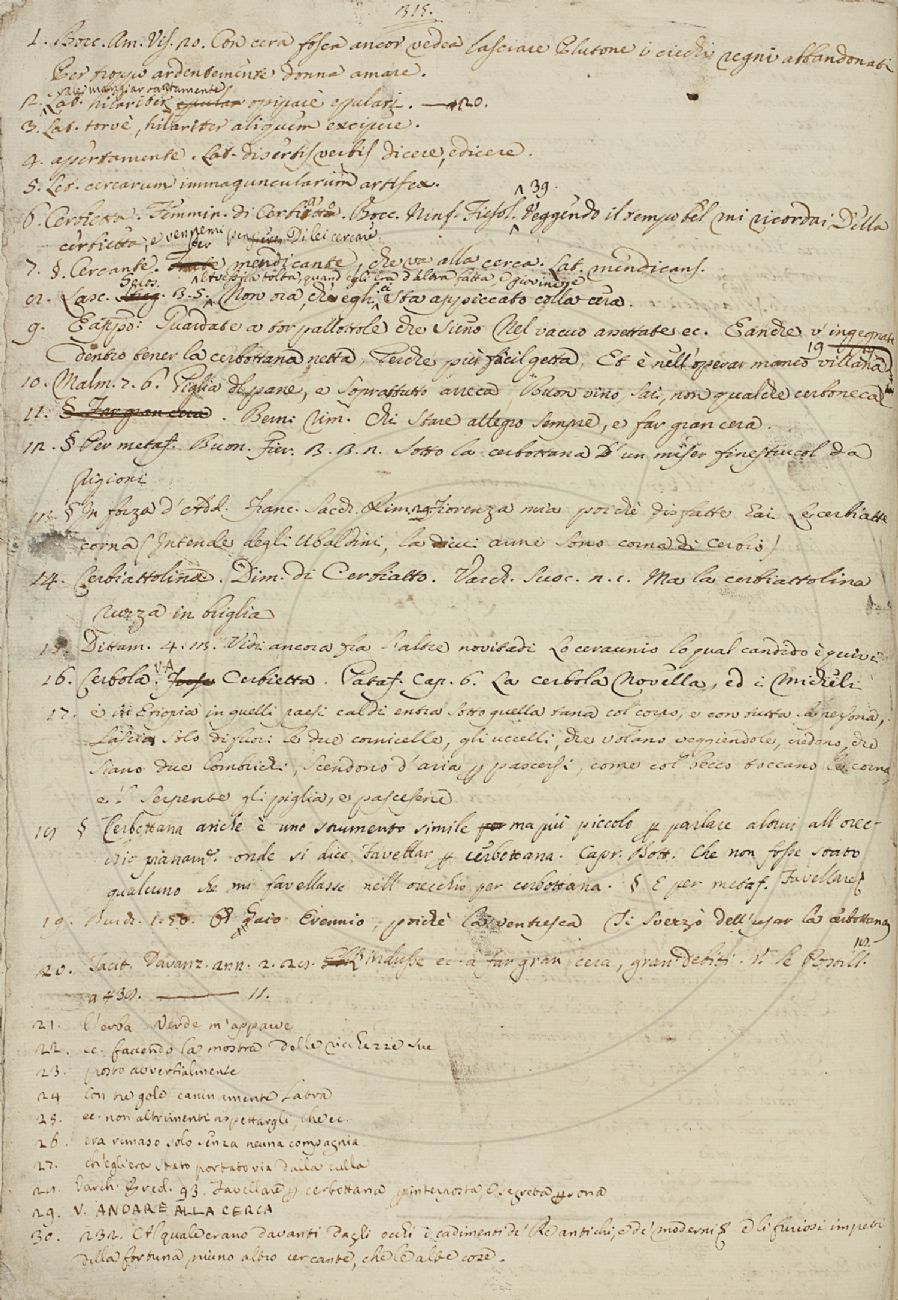 315.
1. Bocc. Am. Vis. 20. Con cera fosca ancor vedea lasciare Plutone i ciechi regni abbandonati
Per troppo ardentemente donna amare.
vale mangiar lautamente
2. Lat. hilariter opipare epulari. — a 20.
3. Lat. torvè, hilariter aliquem excipere.
4. apertamente. Lat. disertis verbis dicere, edicere.
5. Lat. cerearum immaguncularum artifex.
6. Cerbietta. Femmin. di Cerbietto. Bocc. Ninf. Fiesol. 39. Veggendo il tempo bel mi ricordai Della
cerbietta, e vennemi pensiero Di lei cercare
7. §. Cercante. per mendicante, che va alla cerca. Lat. mendicans.
altrevia tolta, quand' egli era d'altra fatta, e giovincel
Lasc. 2. 5. Non ora che egli ci sta appiccato colla cera.
9. E appo: Guardate a tor pallottole che sieno Nel vacuo assettate ec. E anche v' ingegnate
Dentro tener la cerbottana netta Perche più facil getta, Et è nell' operar manco villana
19
10. Malm. 7. 6. Piglia del pane, e soprattutto arreca Buon vino, sai, non qualche cerboneca
11. § Far gran cera. Berni rim. Chi stare allegro sempre, e far gran cera.
12. § Per metaf. Buon. Fier. 2. 2. Sotto la cerbottana D' un miser finestrucol da
prigioni
13. § In forza d' Add. Franc. Sacch. Rim. Fiorenza mia poichè disfatte hai Le cerbiatte
corna (Intende degli Ubaldini, la di cui arme sono corna di Cerbio)
14. Cerbiattolina. Dim. di Cerbiatto. Varch. Suoc. 2. 1. Ma la cerbiattolina
ruzza in briglia
15. Dittam. 4. Vidi ancora fra l'altre novitadi Lo ceraunio lo qual candido è quivi
16. Cerbola. V.A. Cerbietta. Pataff. Cap. 6. La cerbola novella, ed i Micheli
17. è in Etiopia in quelli paesi caldi entra sotto quella tana col corpo, e con tutta la persona,
Lascia solo di fuori le due cornicelle, gli uccelli, che volano veggiendole, credono, che
siano due lombrichi, scendono d'aria p pascersi, come col becco toccano le corna
e 'l serpente gli piglia, e pascesene
18 § Cerbottana anche è uno strumento simile ma più piccolo p parlare altrui all' orec-
chio pianam.e onde si dice Favellar p cerbottana. Capr. Bott. Che non fosse stato
qualcuno che mi favellasse nell' orecchio per cerbottana. § E per metaf. Favellare
19. Burch. 1. 80. O Gaio Erennio, poichè la ventresca Si sverzò dell' usar la cerbottana
20. Tacit. Davanz. ann. 2. indusse ec. a far gran cera, gran debiti. V. le Postill. 10.
a — 11.
21. l'erba verde m'apparve
22. ec. facendo la mostra delle ricchezze sue
23. posto avverbialmente
24 Con tre gole caninamente latra
25. ec. non altrimenti aspettargli, che ec.
26. era rimaso solo senza neuna compagnia
27. ch' egli era stato portato via dalla culla
28. Varch. Ercol. 93. Favellare p cerbottana p interposta e segreta p rsona
29. V. ANDARE ALLA CERCA
30. 232. Al quale erano davanti dagli occhi i cadimenti de' Re antichi, e de' moderni e li furiosi impeti
della fortuna niuno altro cercante, che le alte cose.